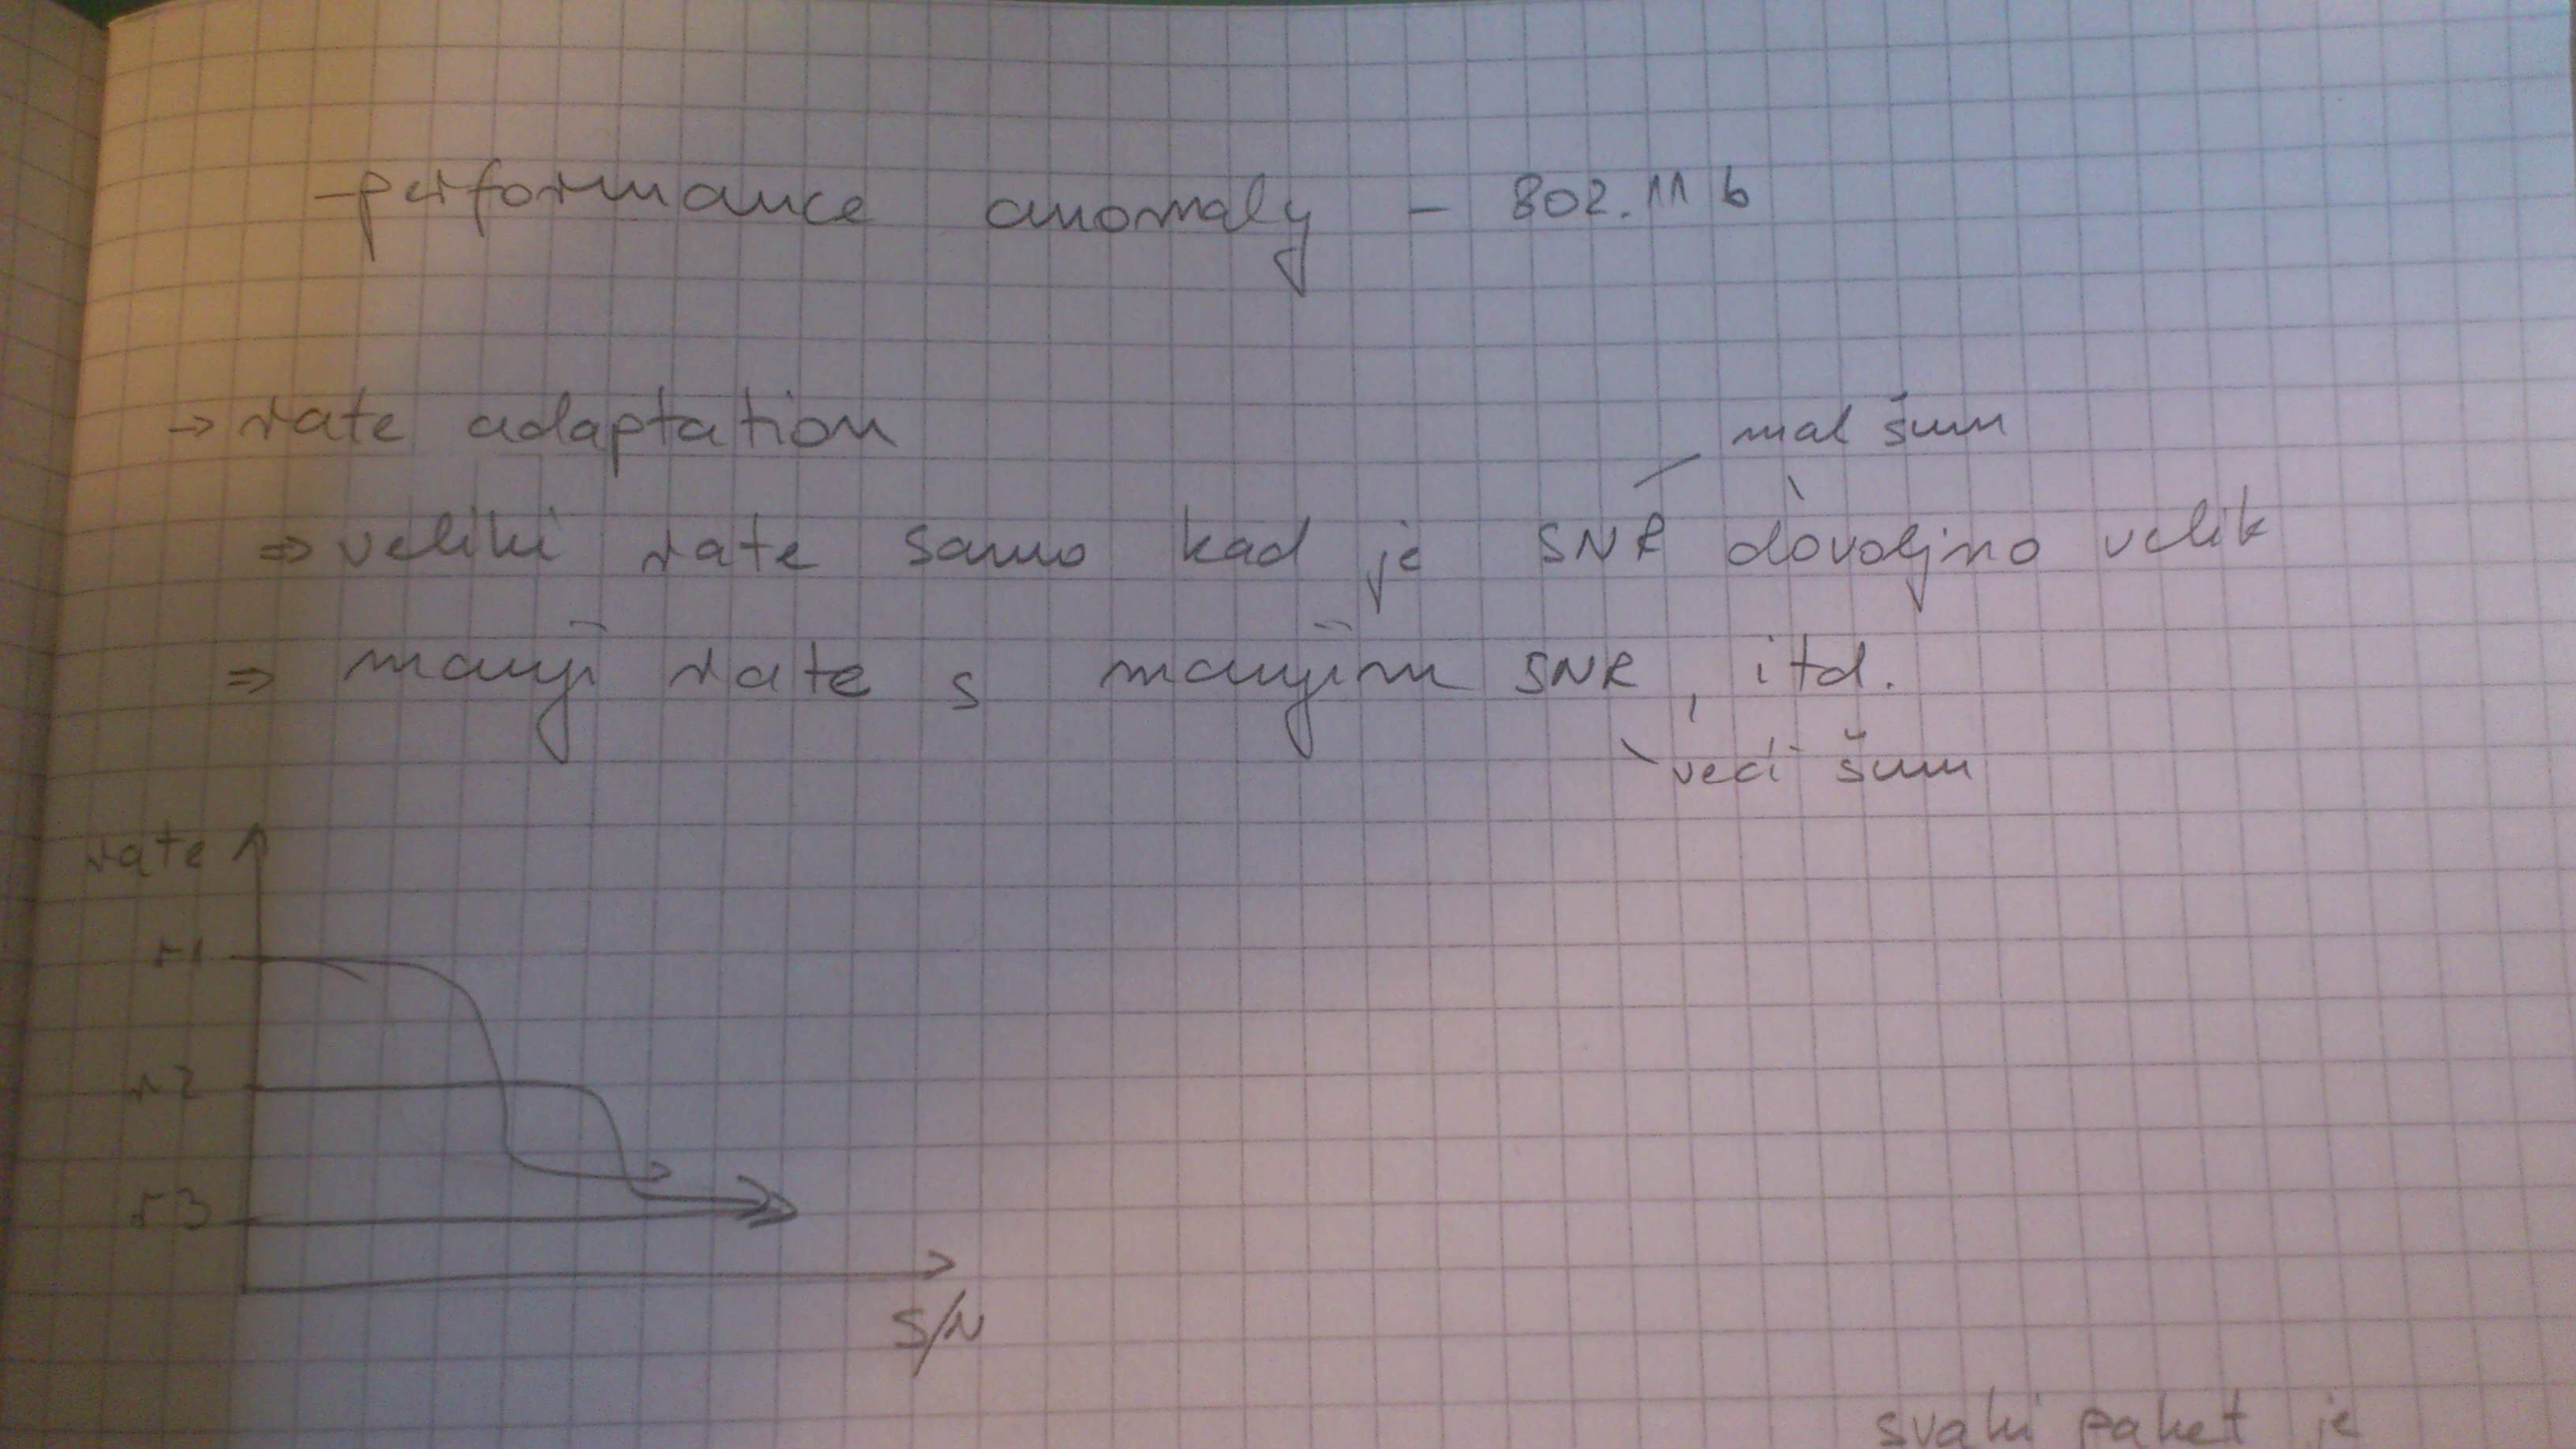 - performance anomaly - 802.11 b
→ rate adaptation
mal šum
⇒ veliki rate samo kad je SNR dovoljno velik
⇒ manji rate s manjim SNR, itd.
veći šum
rate
r1
r2
r3
S/N
svaki paket je